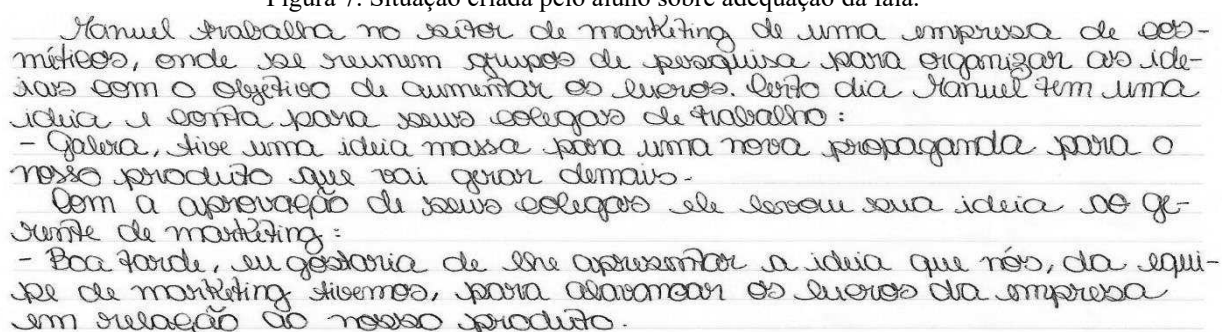 Figura 7. Situação criada pelo aluno sobre adequação da fala.
Manuel trabalha no setor de marketing de uma empresa de cos-
méticos, onde se reunem grupos de pesquisa para organizar as ide-
ias com o objetivo de aumentar os lucros. Certo dia Manuel tem uma
ideia e conta para seus colegas de trabalho:
- Galera, tive uma ideia massa para uma nova propaganda para o
nosso produto que vai gerar demais.
Com a aprovação de seus colegas ele levou sua ideia ao ge-
rente de marketing:
- Boa tarde, eu gostaria de lhe apresentar a ideia que nós, da equi-
pe de marketing tivemos, para alavancar os lucros da empresa
em relação ao nosso produto.